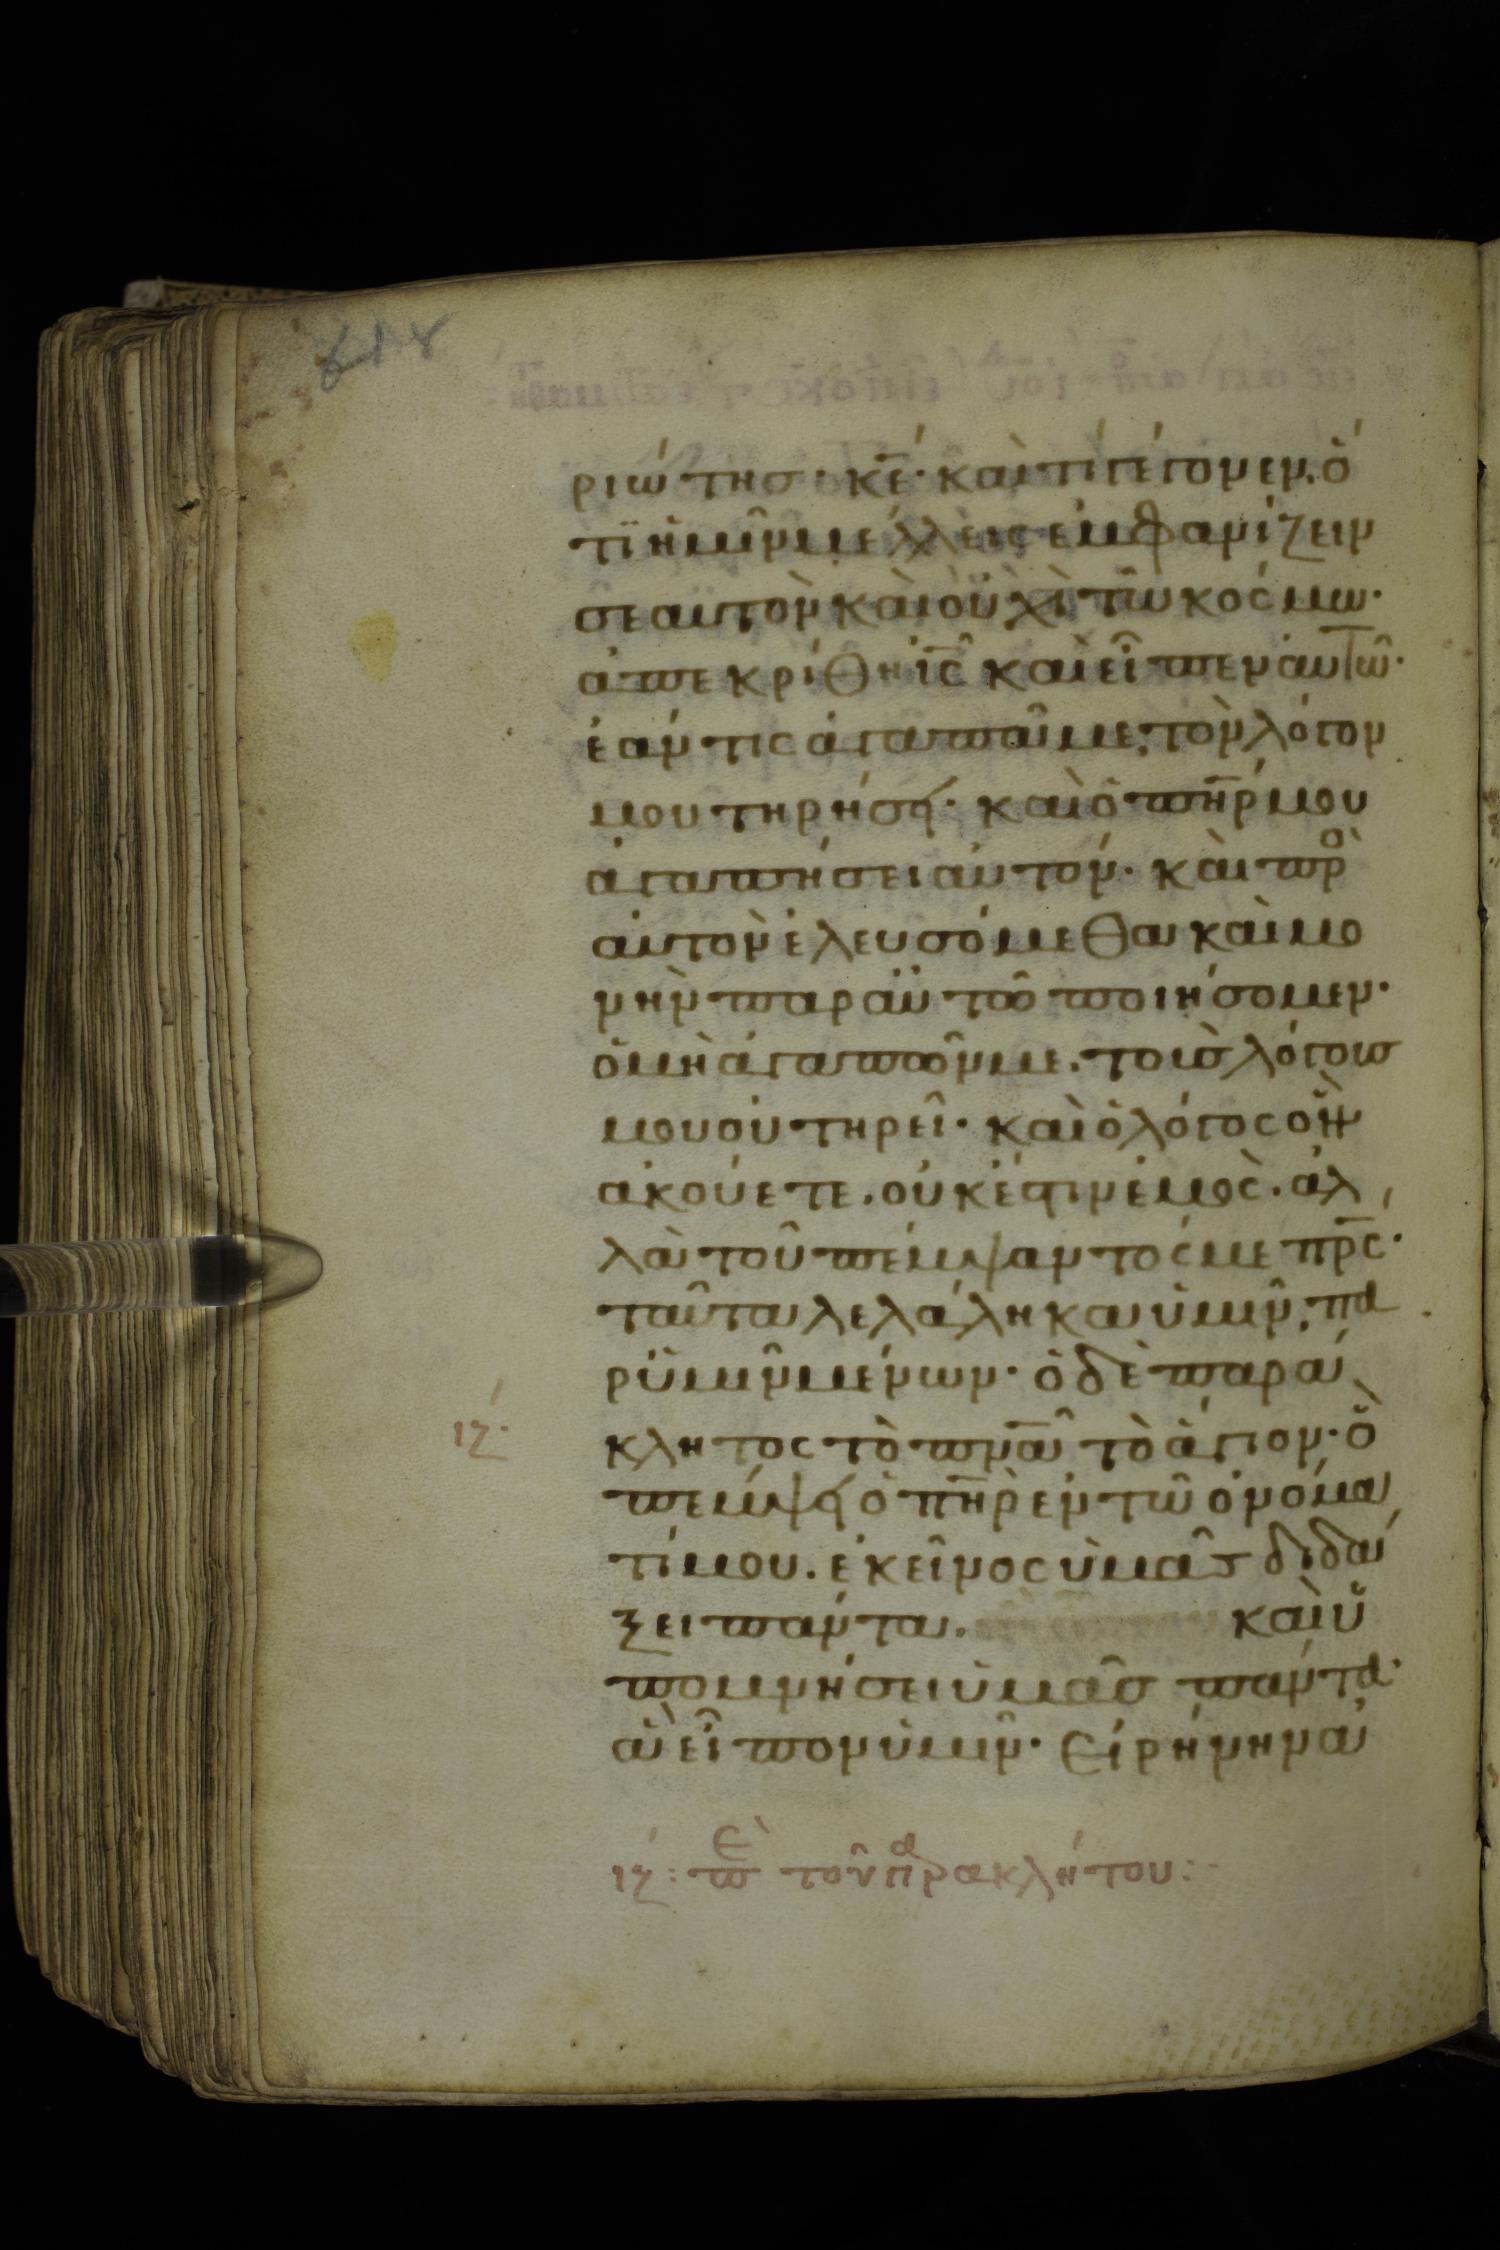 ριώτησ· κε̅· καὶ τί γέγονεν, ὅ
τι ἡμῖν μέλλεις ἐμφανίζειν
σεαυτὸν καὶ οὐχὶ τῶ κόσμω·
ἀπεκρίθη ις̅ καὶ εἶπεν αὐτῶ·
ἐάν τις ἀγαπᾶ με, τὸν λόγον
μου τηρήσει· καὶ ὁ πη̅ρ μου
ἀγαπήσει αὐτόν· καὶ πρὸ
αὐτὸν ἐλευσόμεθα καὶ μο
νὴν παρ αὐτῶ ποιήσομεν·
ὁ μὴ ἀγαπῶν με. τοὺσ λόγουσ
μου οὐ τηρεῖ· καὶ ὁ λόγος ὃν
ἀκούετε. οὐκ ἔστιν ἐμὸς. ἀλ
λὰ τοῦ πέμψαντός με πρ̅ς·
ταῦτα λελάληκα ὑμῖν, πα
ρ ὑμῖν μένων· ὁ δὲ παρά
ιζ· κλητος τὸ πν̅α τὸ ἅγιον· ὃ
πέμψει ὁ πη̅ρ ἐν τῶ ὀνόμα
τί μου. ἐκεῖνος ὑμᾶς διδά
ξει πάντα. καὶ ὑ
πομνήσει ὑμᾶσ πάντα·
ἃ εἶπον ὑμῖν· Εἰρήνην ἀ
ιζ: πε τοῦ παρακλήτου: